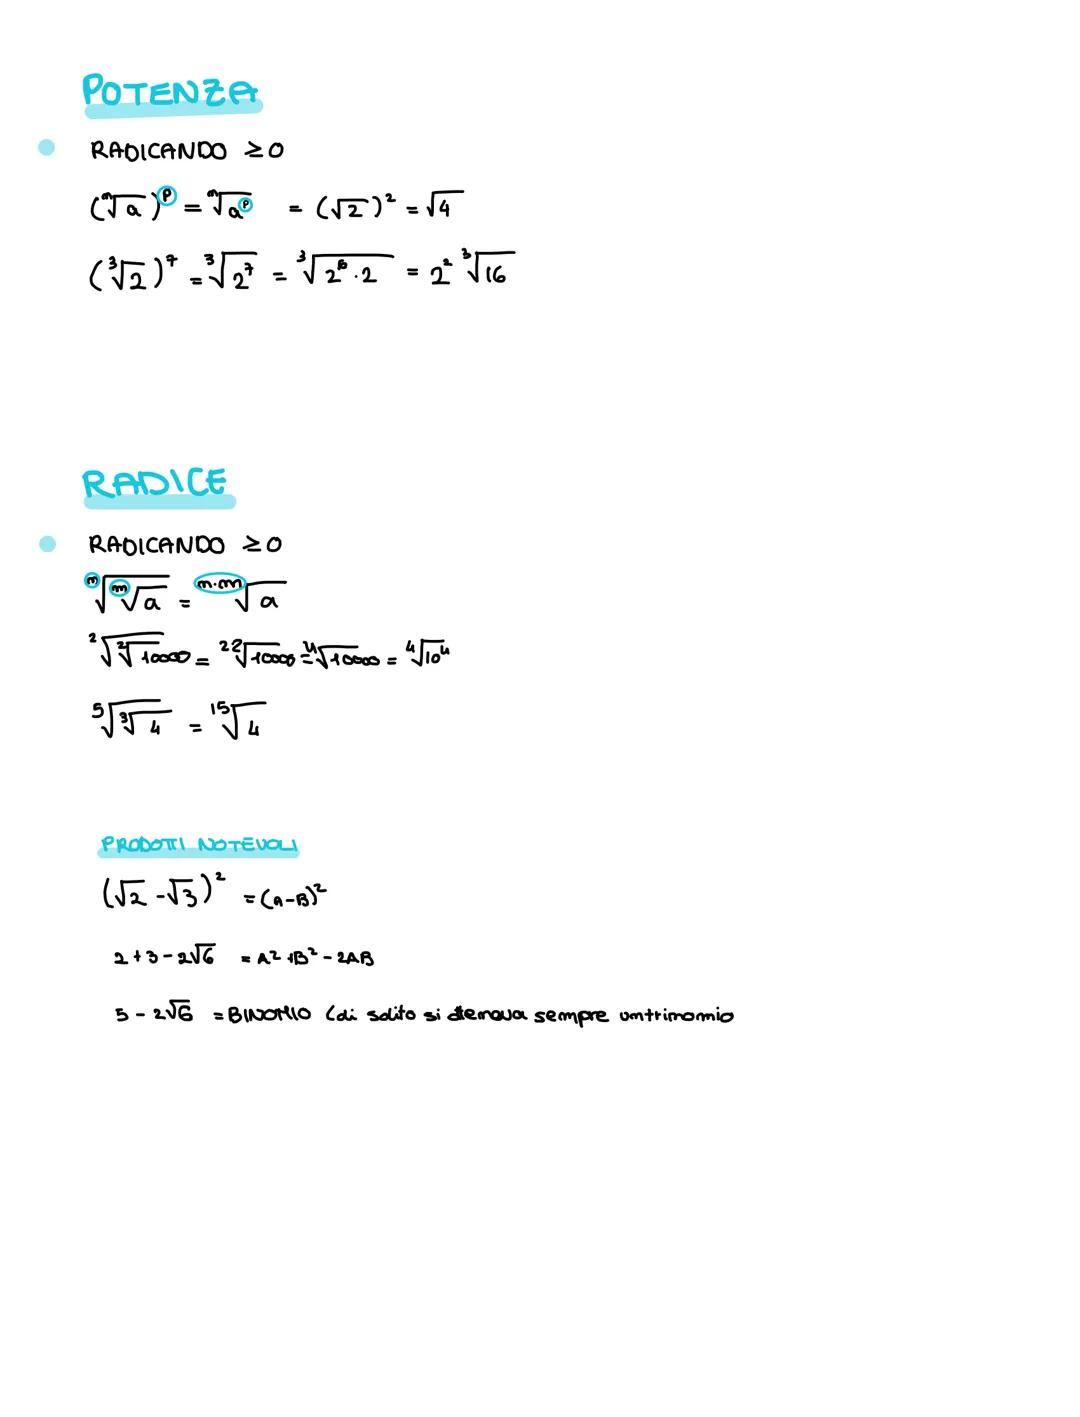 POTENZA
RADICANDO ≥0
(ⁿ√a)ᵖ = ⁿ√aᵖ = (√2)² = √4
(³√2)⁷ = ³√2⁷ = ³√2⁶·2 = 2² ³√16
RADICE
RADICANDO ≥0
ⁿ√ᵐ√a = ⁿ·ᵐ√a
²√²√10000 = ²²√10000 = ⁴√10000 = ⁴√10⁴
⁵√³√4 = ¹⁵√4
PRODOTTI NOTEVOLI
(√2 -√3)² = (A-B)²
2+3-2√6 = A²+B²-2AB
5-2√6 = BINOMIO (di solito si trova sempre un trinomio